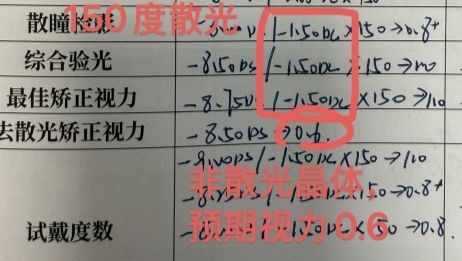 150度散光
散瞳检影 /-1.50DC×150→0.8+
综合验光 -8.50DS/-1.50DC×150→1.0
最佳矫正视力 -8.75DS/-1.50DC×150→1.0
去散光矫正视力 -8.50DS→0.6.
-8.00DS/-1.50DC×150→1.0
非散光晶体,
×150→0.8+
预期视力0.6
试戴度数 ×150→0.8